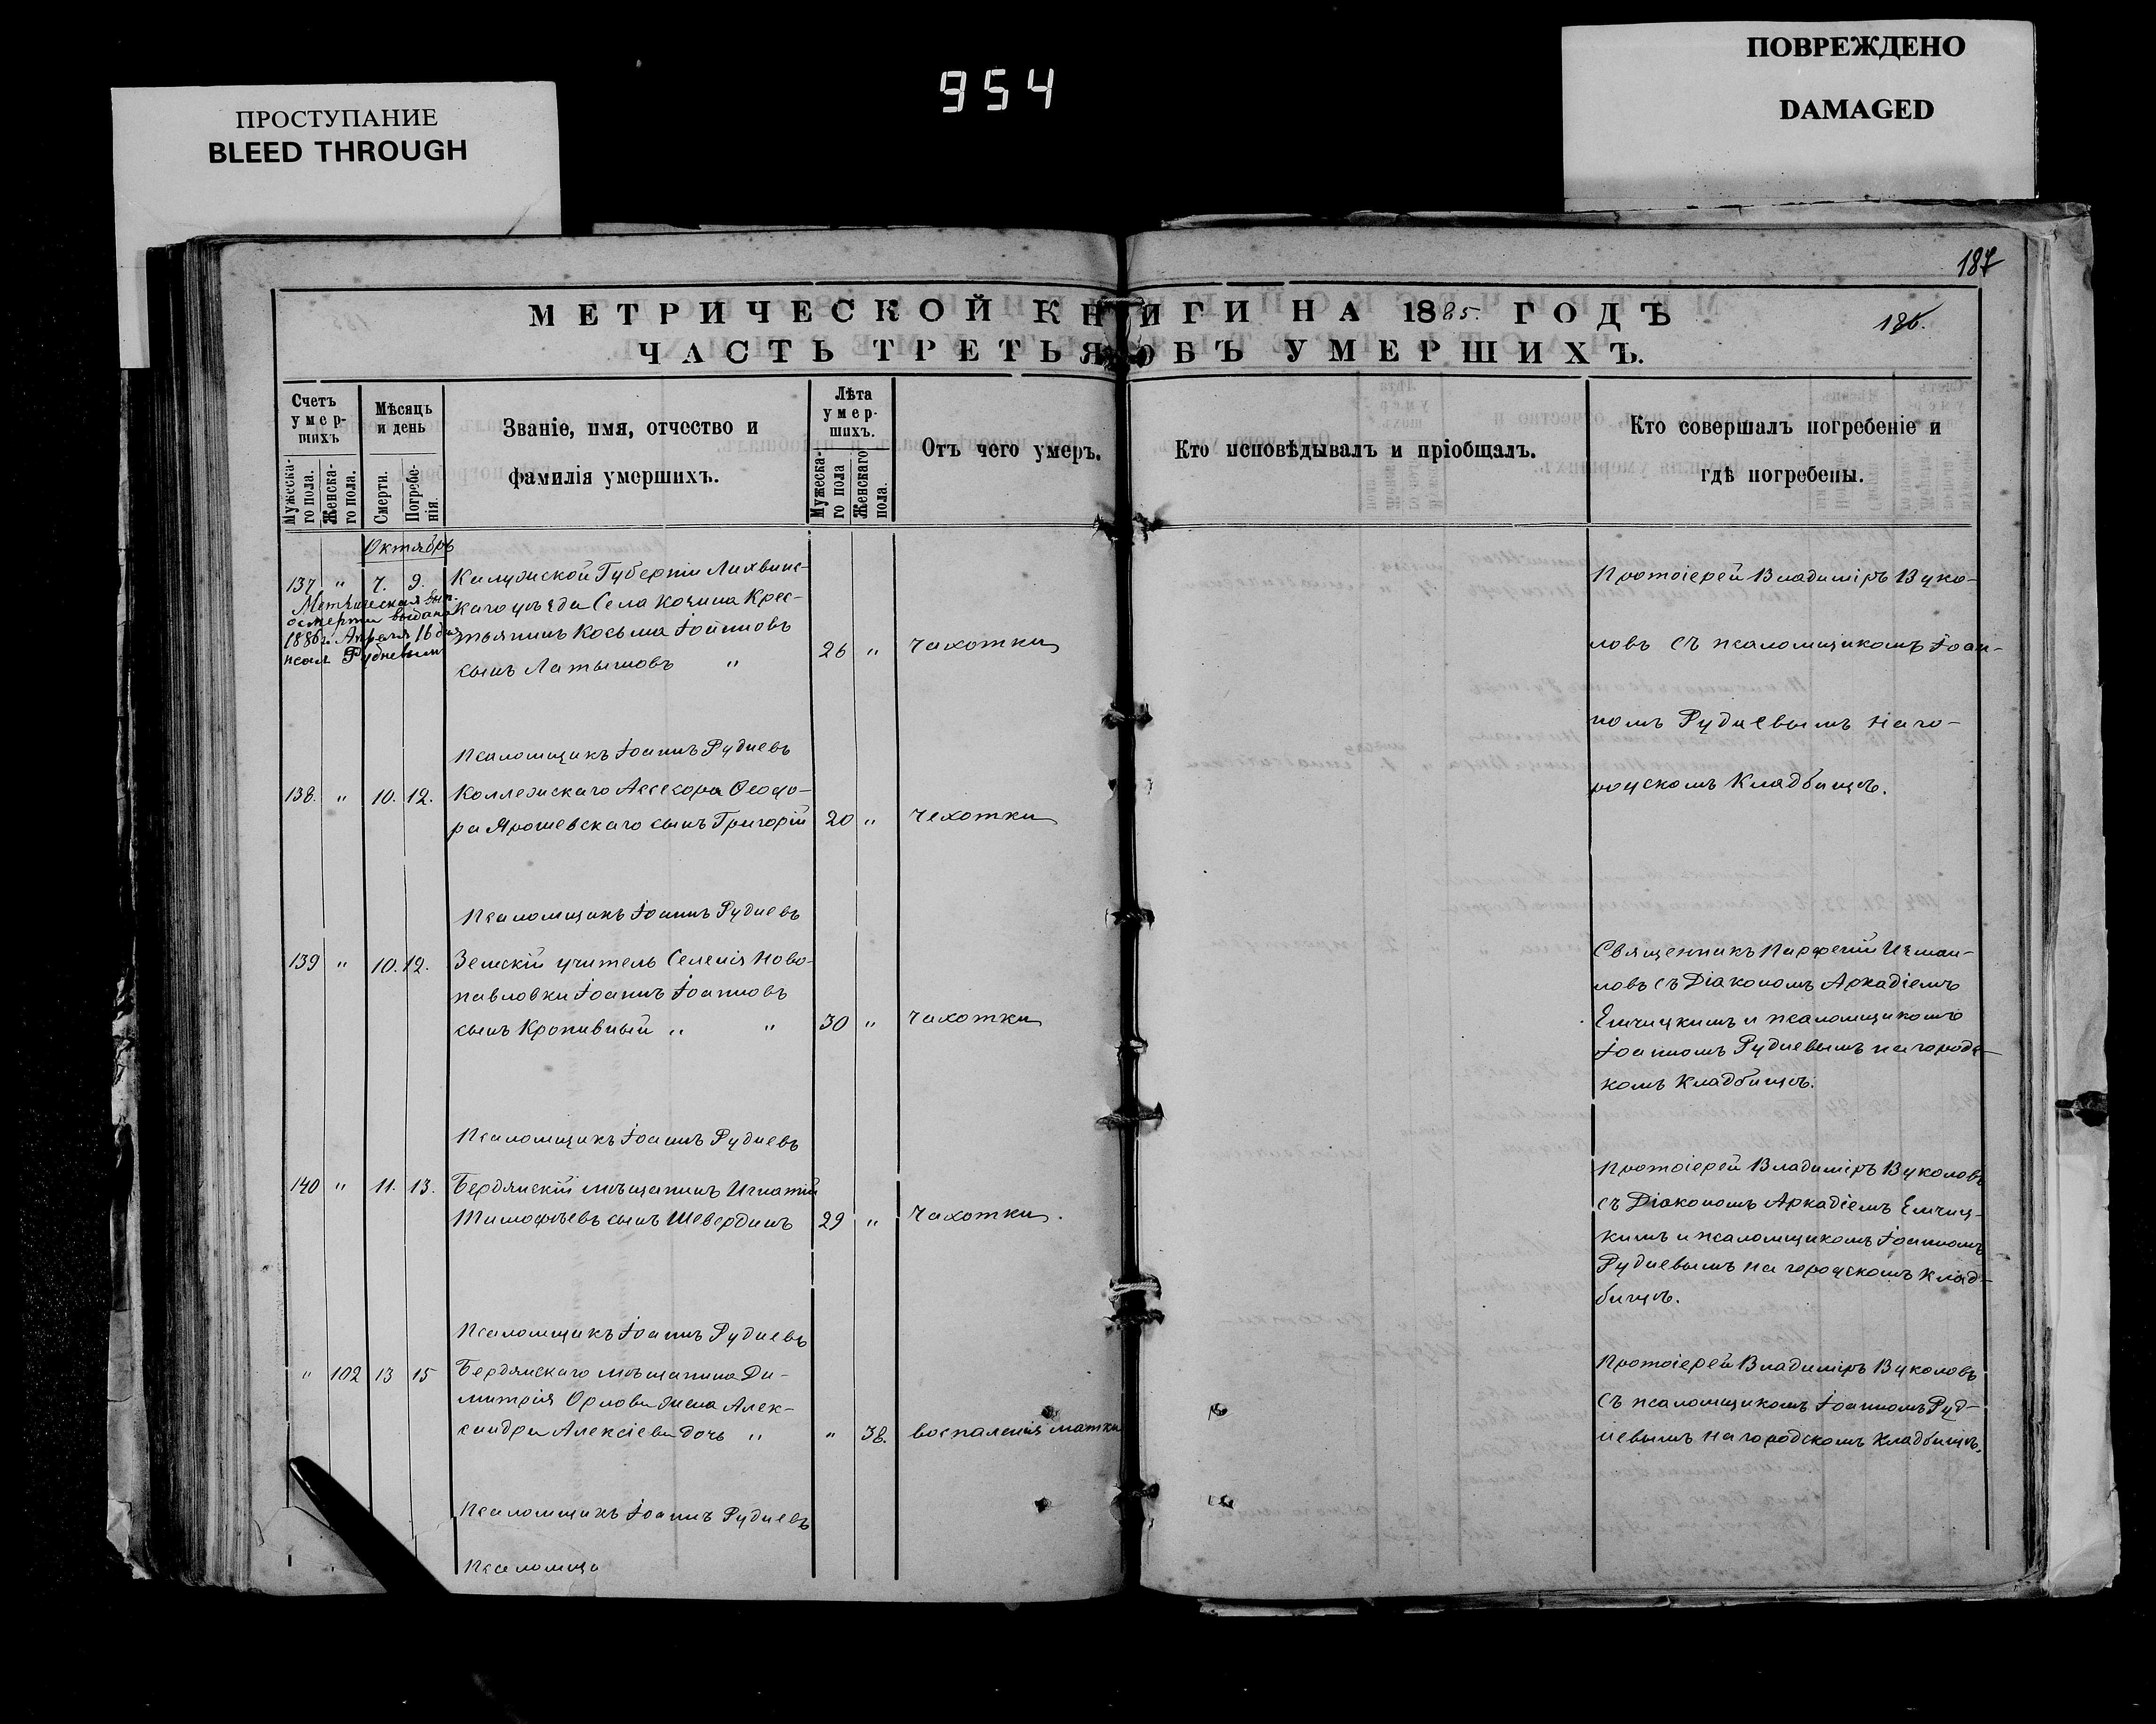 954
ПРОСТУПАНИЕ
BLEED THROUGH
ПОВРЕЖДЕНО
DAMAGED
187
МЕТРИЧЕСКОЙ КНИГИ НА 1885. ГОДЪ
186.
ЧАСТЬ ТРЕТЬЯ ОБЪ УМЕРШИХЪ.
Счетъ умер-шихъ
Мужеска-го пола.
Женска-го пола.
Мѣсяцъ и день
Смерти.
Погребе-нія.
Званіе, имя, отчество и
фамилія умершихъ.
Лѣта умер-шихъ.
Мужеска-го пола
Женскаго пола.
Отъ чего умеръ.
Кто исповѣдывалъ и пріобщалъ.
Кто совершалъ погребеніе и
гдѣ погребены.
Октябрь
137 " 7. 9. Калужской Губерніи Лихвинс-
Метрическая вып.
о смерти выдана
1886 г. Апреля 16 дня
псал. Рудневым
каго уѣзда Села Кочина Крес-
тьянинъ Косьма Іоанновъ
сынъ Латышовъ " 26 " чахотки
Протоіерей Владиміръ Вуко-
ловъ съ псаломщикомъ Іоан-
номъ Рудневымъ на го-
родскомъ Кладбищѣ.
Псаломщикъ Іоаннъ Рудневъ
138. " 10. 12. Коллежскаго Ассесора Ѳеодо-
ра Ярошевскаго сынъ Григорій 20 " чехотки
Псаломщикъ Іоаннъ Рудневъ
139 " 10. 12. Земскій учитель Селенія Ново-
павловки Іоаннъ Іоанновъ
сынъ Кропивный " " 30 " чахотки
Священникъ Парѳеній
ловъ съ Діакономъ Аркадіемъ
Емчицкимъ и псаломщикомъ
Іоанномъ Рудневымъ на городс-
комъ Кладбищѣ.
Псаломщикъ Іоаннъ Рудневъ
140 " 11. 13. Бердянскій мѣщанинъ Игнатій
Тимофѣевъ сынъ Шевердинъ 29 " чахотки.
Протоіерей Владиміръ Вуколовъ
съ Діакономъ Аркадіемъ Емчиц-
кимъ и псаломщикомъ Іоанномъ
Рудневымъ на городскомъ Клад-
бищѣ.
Псаломщикъ Іоаннъ Рудневъ
" 102 13 15 Бердянскаго мѣщанина Ди-
митрія Орлова жена Алек-
сандра Алексіева дочь " " 38. воспаленія матки
Протоіерей Владиміръ Вуколовъ
съ псаломщикомъ Іоанномъ Руд-
невымъ на городскомъ Кладбищѣ.
Псаломщикъ Іоаннъ Рудневъ
Псаломщ